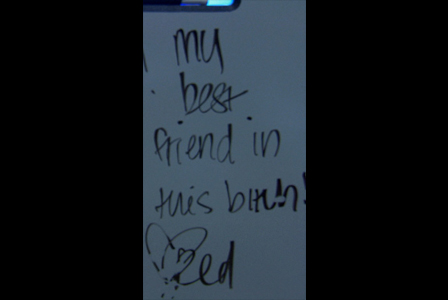 my
best
friend in
this bitch!
Red